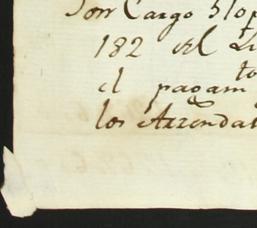 Son Cargo 51op
182 del Li
to
el pagam
los Arrendat